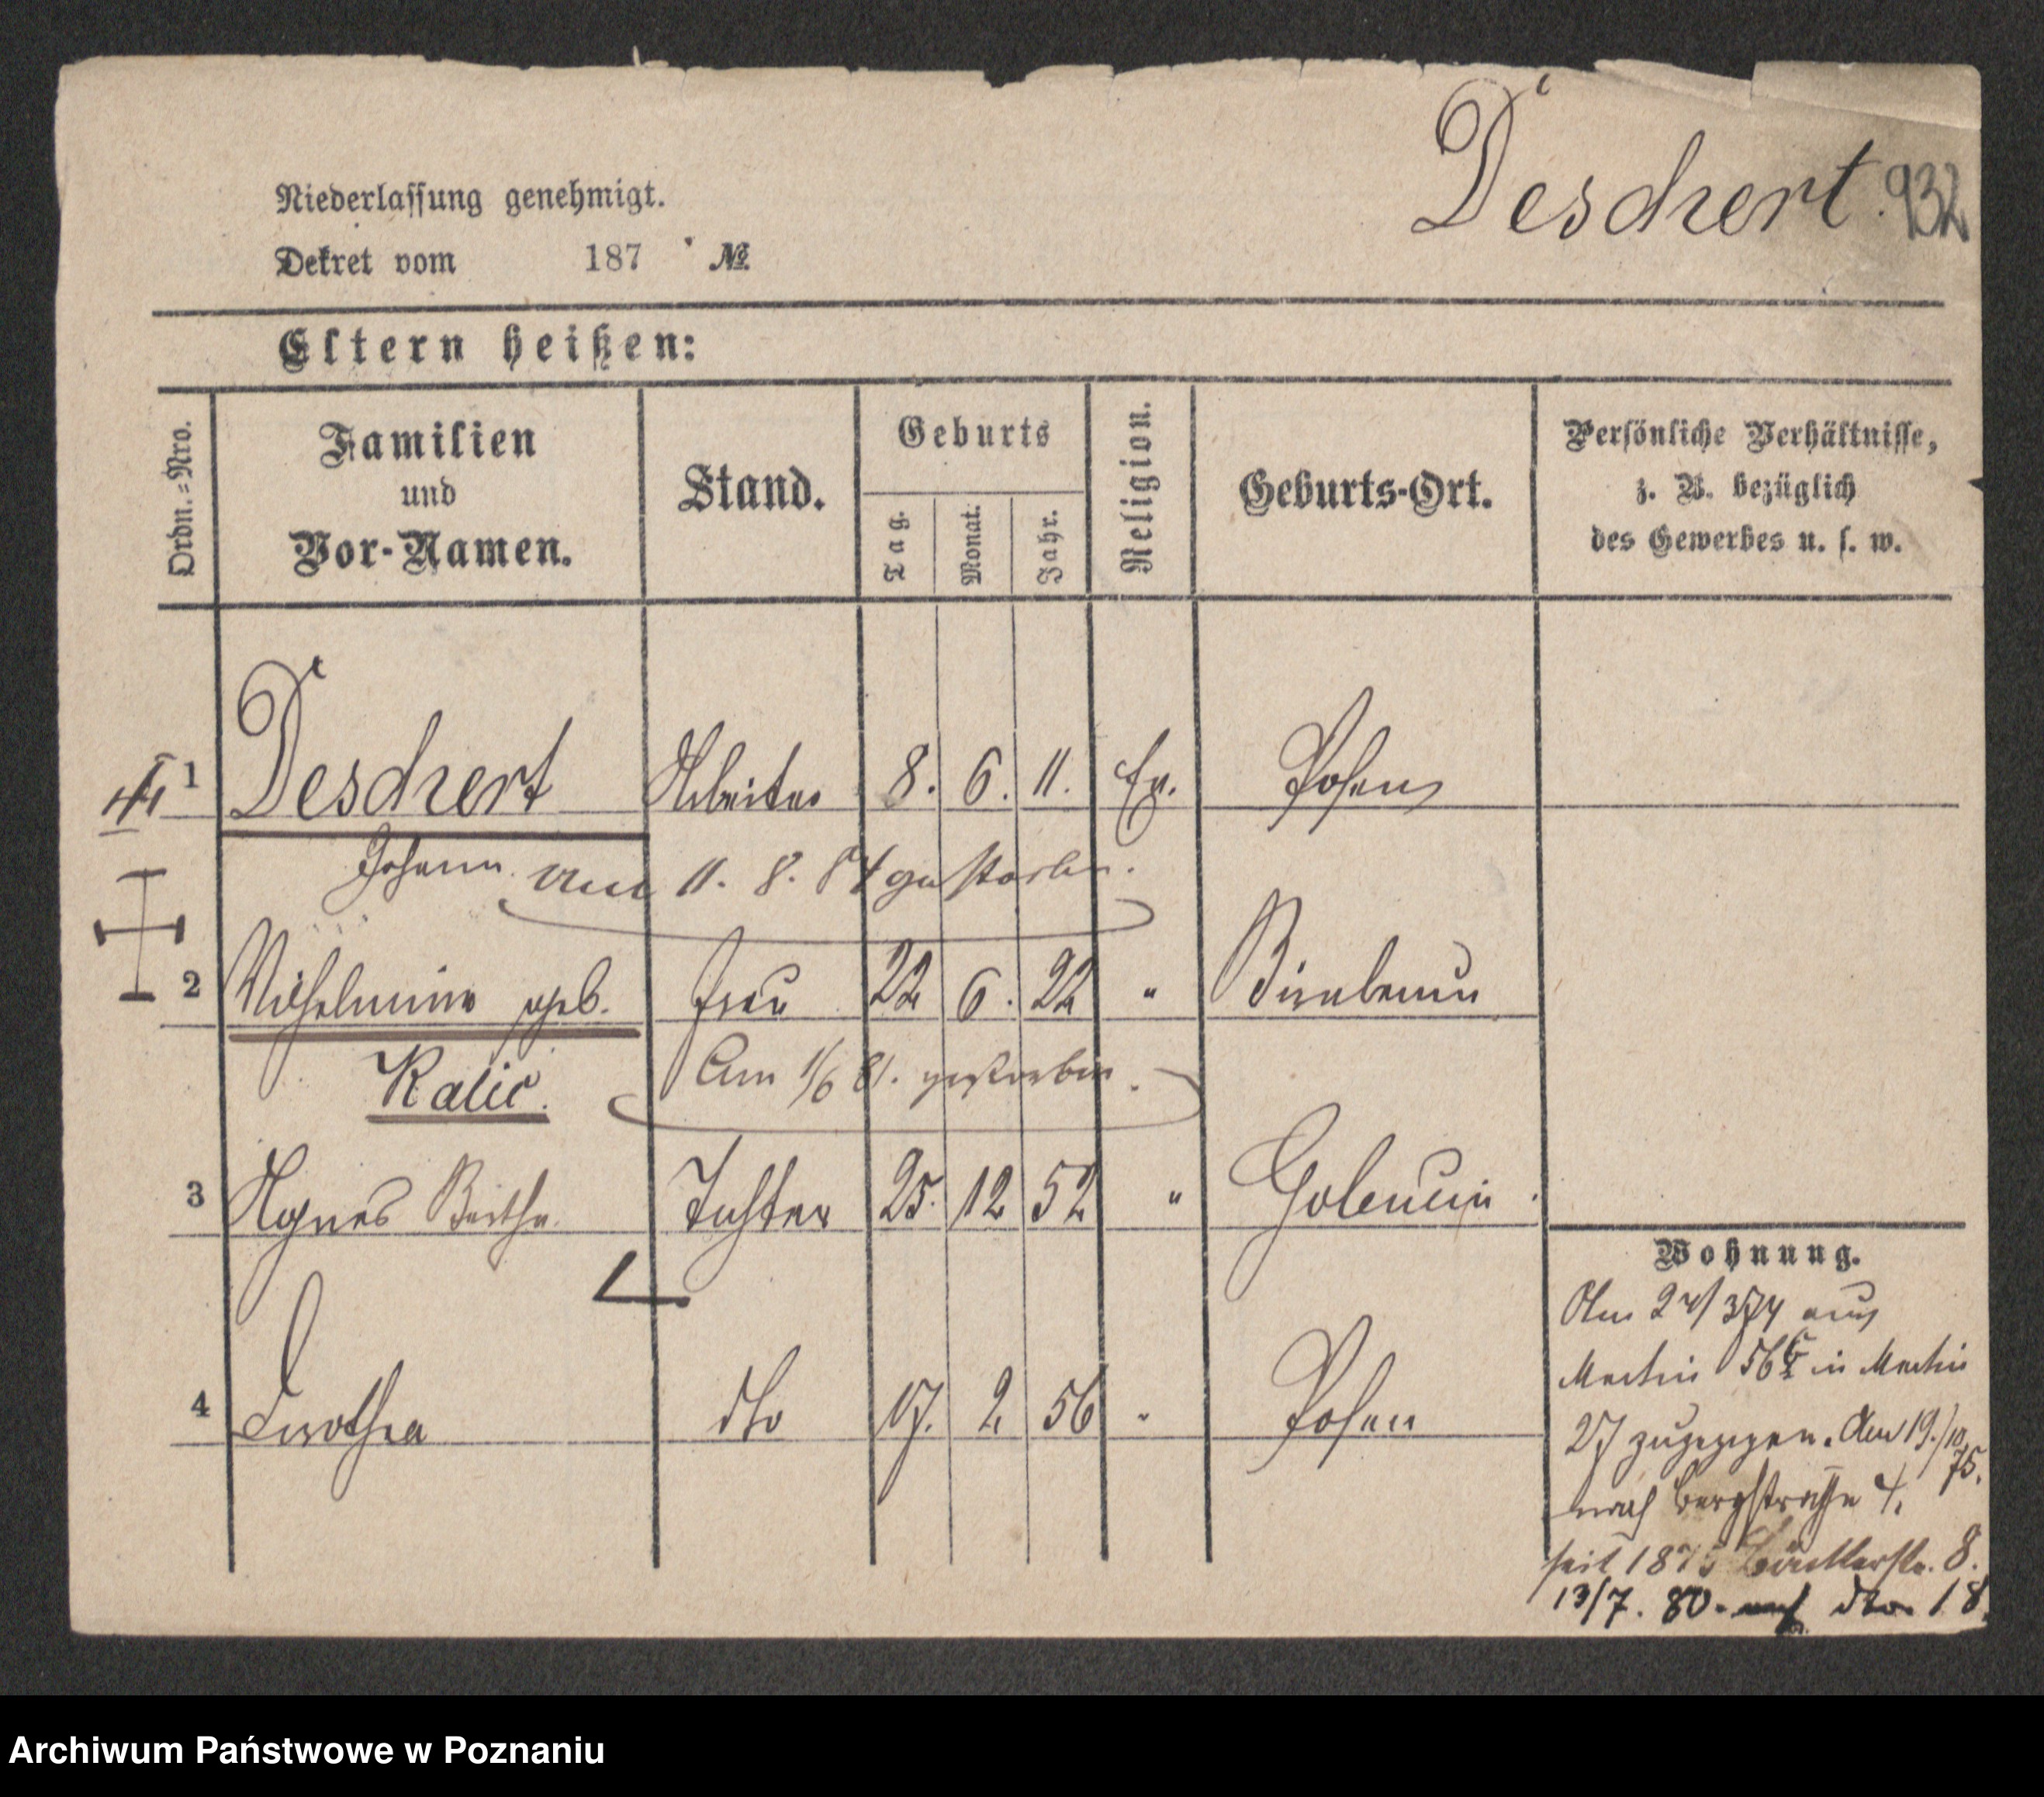 Deschert. 932
Niederlassung genehmigt.
Dekret vom 187 № 
Eltern heißen:
Ordn.=Nro.
Familien
und
Vor-Namen.
Stand.
Geburts
Tag.
Monat.
Jahr.
Religion.
Geburts-Ort.
Persönliche Verhältnisse,
z. B. bezüglich
des Gewerbes u. s. w.
1 Deschert Arbeiter 8. 6. 11. Ev. Posen
Johann. Am 11. 8. 84 gestorben.
2 Wilhelmine geb. Frau 22 6. 22 " Birnbaum
Kalie. Am 1/6 81. gestorben.
3 Agnes Bertha Tochter 25. 12 52 "
4 Dorothea dto 17. 2 56 " Posen
Wohnung.
Am 374 aus
Martin 56 in Martin
27 zugezogen. Am 19./10 75.
nach Bergstraße 4.
seit 8.
13/7. 80. auf dto 18.
Archiwum Państwowe w Poznaniu